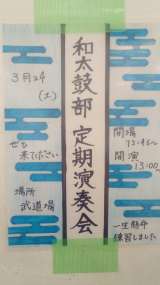 和太鼓部 定期演奏会
3月24
(土)
ぜひ
来てください
場所
武道場
開場
開演
13:00
一生懸命
練習しました